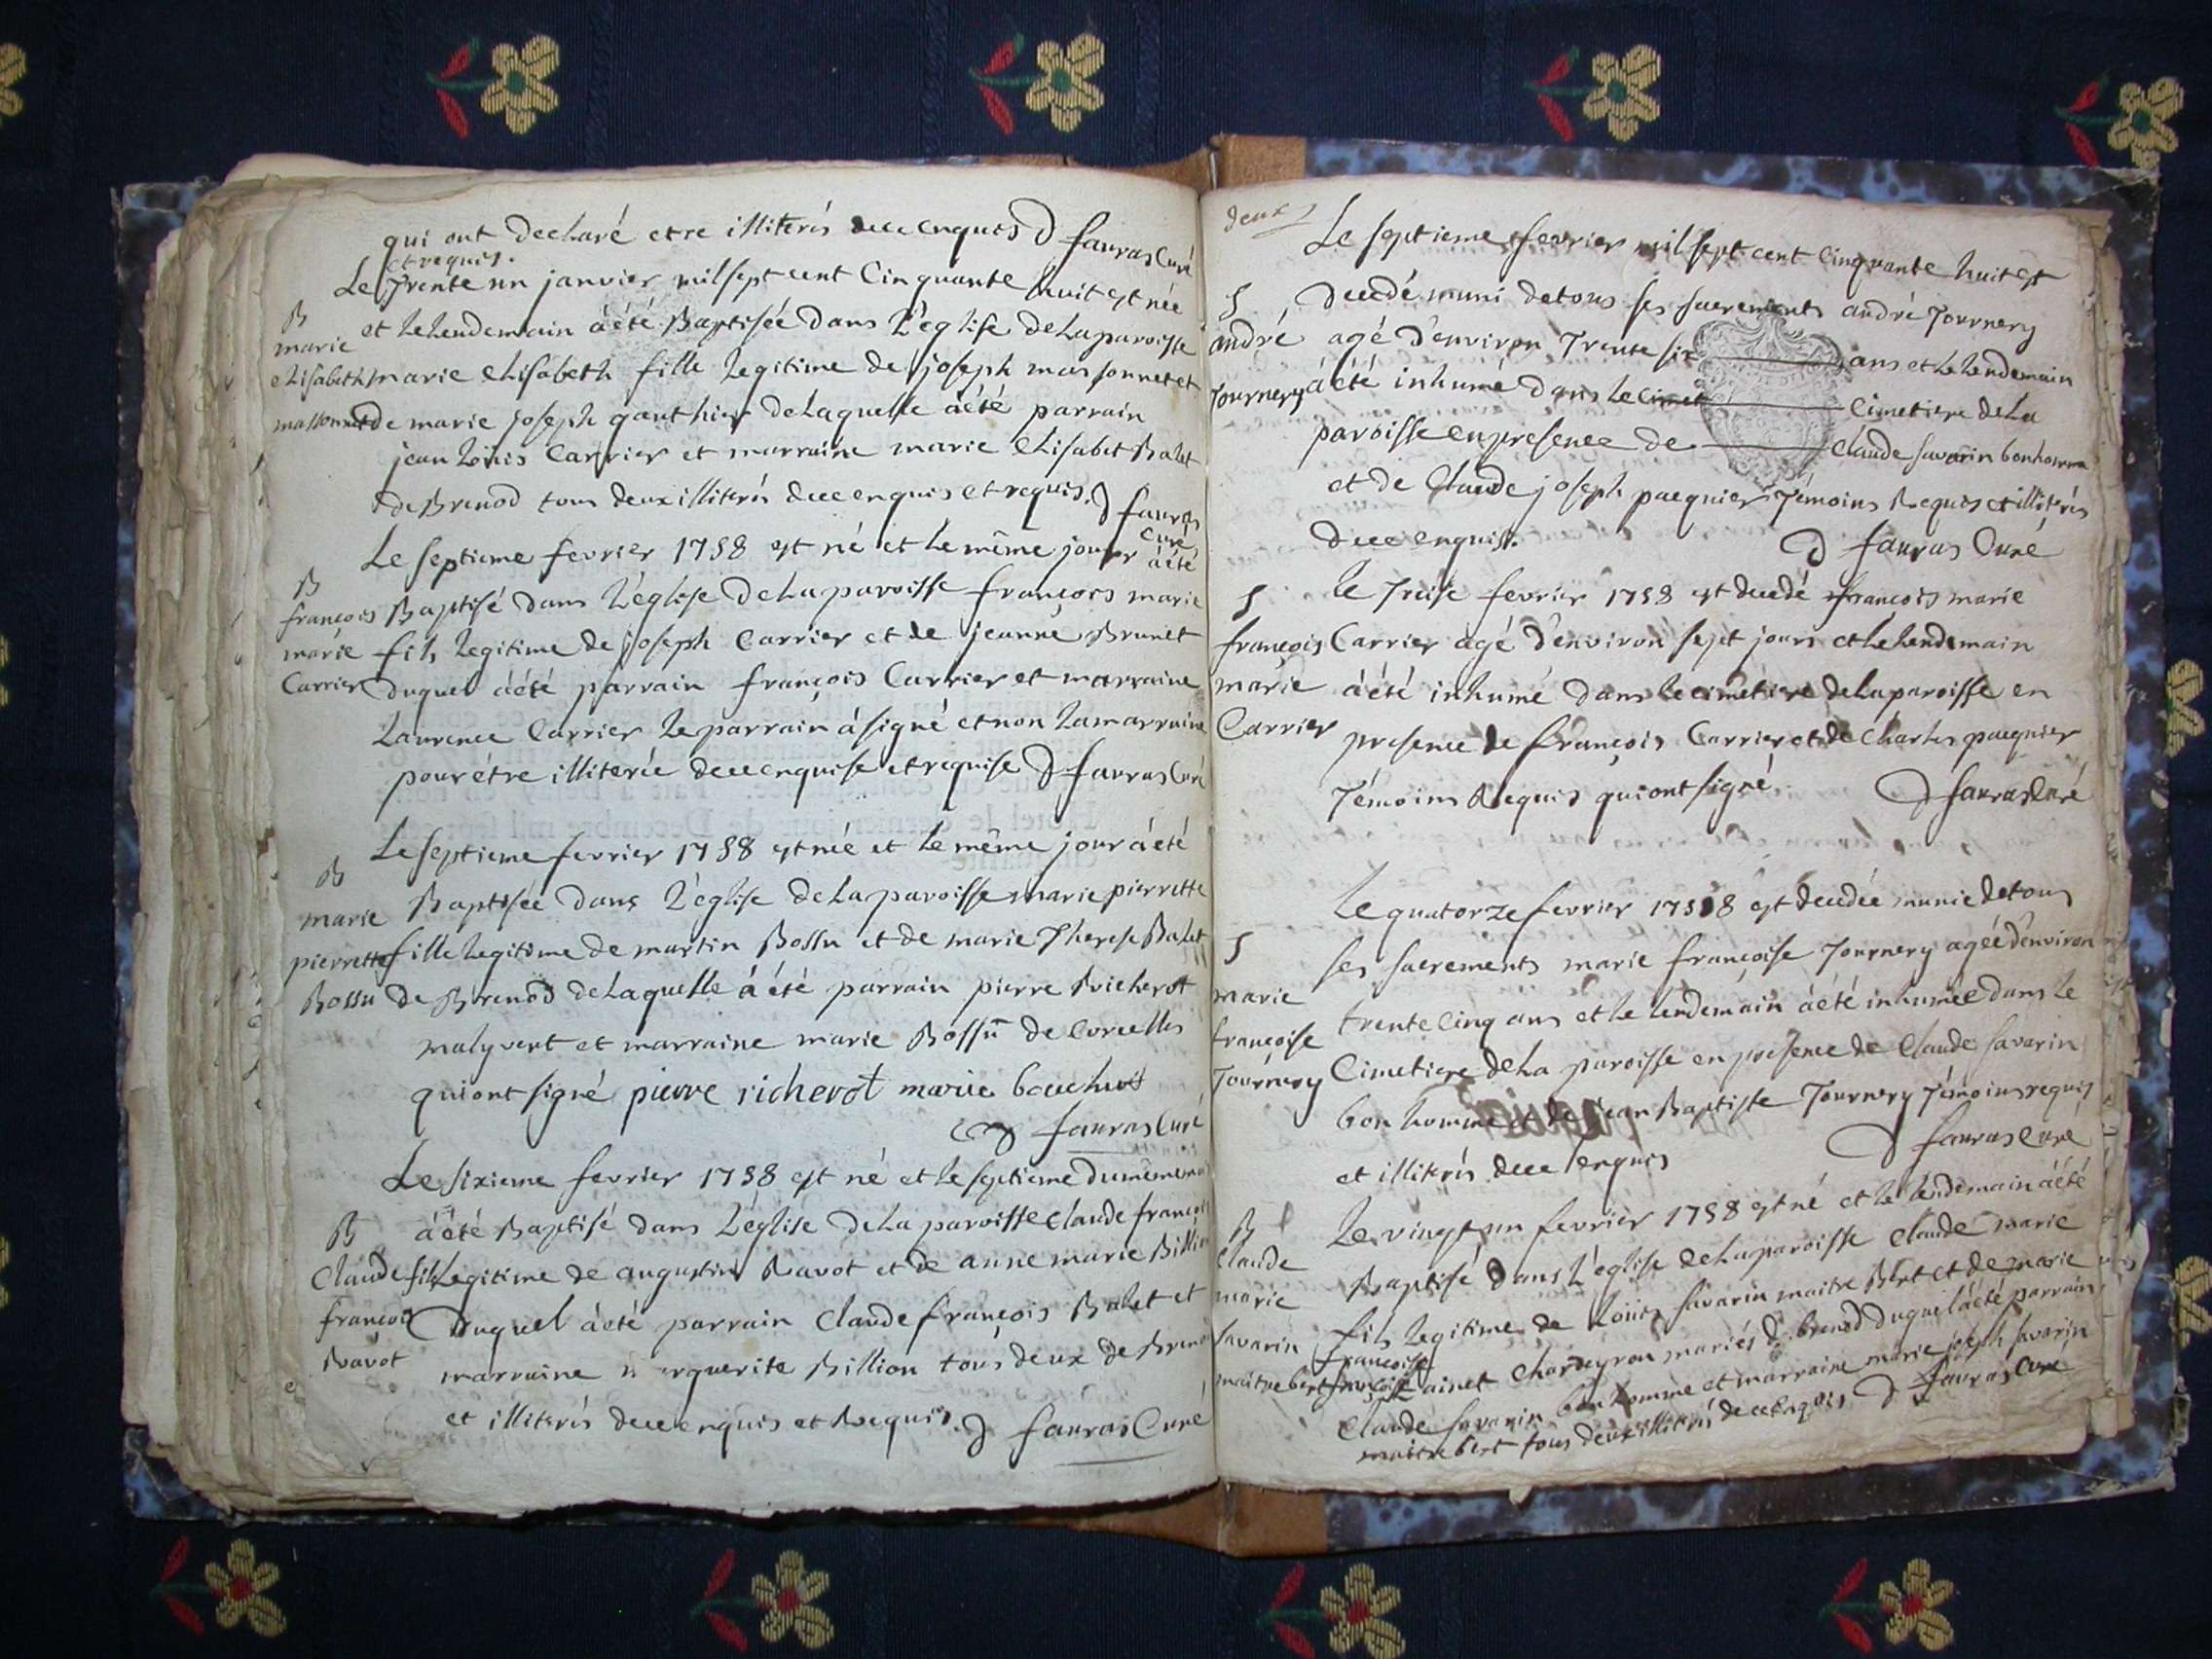 qui ont declaré etre illiterés de ce enquis D fauras Curé
et requis.
Le Trente un janvier mil sept cent Cinquante huit est née
et le lendemain à été Baptisée dans l'église de la paroisse
B
marie
elisabeth
massonnet
marie elisabeth fille legitime de joseph massonnet et
de marie joseph gauthier de laquelle à été parrain
jean Loüis Carrier et marraine marie elisabet Balet
de Brenod tous deux illiterés de ce enquis et requis. D fauras
Curé
Le septieme fevrier 1758 est né et le même jour à été
B
françois
marie
Carrier
Baptisé dans l'église de la paroisse françois marie
fils legitime de joseph Carrier et de jeanne Brunet
duquel à été parrain françois Carrier et marraine
Laurence Carrier le parrain à signé et non la marraine
pour étre illiterée de ce enquise et requise D fauras Curé
Le septieme fevrier 1758 est née et le même jour à été
B
marie
pierrette
Bossu
Baptisée dans l'église de la paroisse marie pierrette
fille legitime de martin Bossu et de marie Therese Balet
de Brenod de laquelle à été parrain pierre Richerot
malyvert et marraine marie Bossu de Corcelles
qui ont signé pierre richerot marie
D fauras Curé
Le sixieme fevrier 1758 est né et le septieme du même
B
Claude
françois
Ravot
à été Baptisé dans l'église de la paroisse Claude françois
fils legitime de augustin Ravot et de anne marie Billion
Duquel à été parrain Claude françois Balet et
marraine marguerite Billion tous deux de Brenod
et illiterés de ce enquis et Requis. D fauras Curé
deux
Le septieme fevrier mil sept cent Cinquante huit est
S
andré
Tournery
decedé muni de tous ses sacrements andré Tournery
agé d'environ Trente six ans et le lendemain
à été inhumé dans le cimet Cimetiere de la
paroisse en presence de Claude Savarin bonhomme
et de Claude joseph paequier Témoins Requis et illiterés
de ce enquis.
D fauras Curé
S
françois
marie
Carrier
Le Treise fevrier 1758 est decedé françois marie
Carrier agé d'environ sept jours et le lendemain
à été inhumé dans le cimetiere de la paroisse en
presence de françois Carrier et de Charles paequier
Témoins Requis qui ont signé. D fauras Curé
Le quatorze fevrier 1758 est decedée munie de tous
S
marie
françoise
Tournery
ses sacrements marie françoise Tournery agée d'environ
trente cinq ans et le lendemain à été inhumée dans le
Cimetiere de la paroisse en presence de Claude Savarin
bon homme et de jean Baptiste Tournery Témoins requis
et illiterés de ce enquis D fauras Curé
B
Claude
marie
Savarin
maitre bert
Le vingt un fevrier 1758 est né et le lendemain à été
Baptisé dans l'église de la paroisse Claude marie
fils legitime de Loüis Savarin maitre Bert et de marie
françoise
ainet Chardeyron mariés de brenod duquel à été parrain
Claude Savarin bon homme et marraine marie joseph Savarin
maitre bert tous deux illiterés de ce enquis D fauras Curé